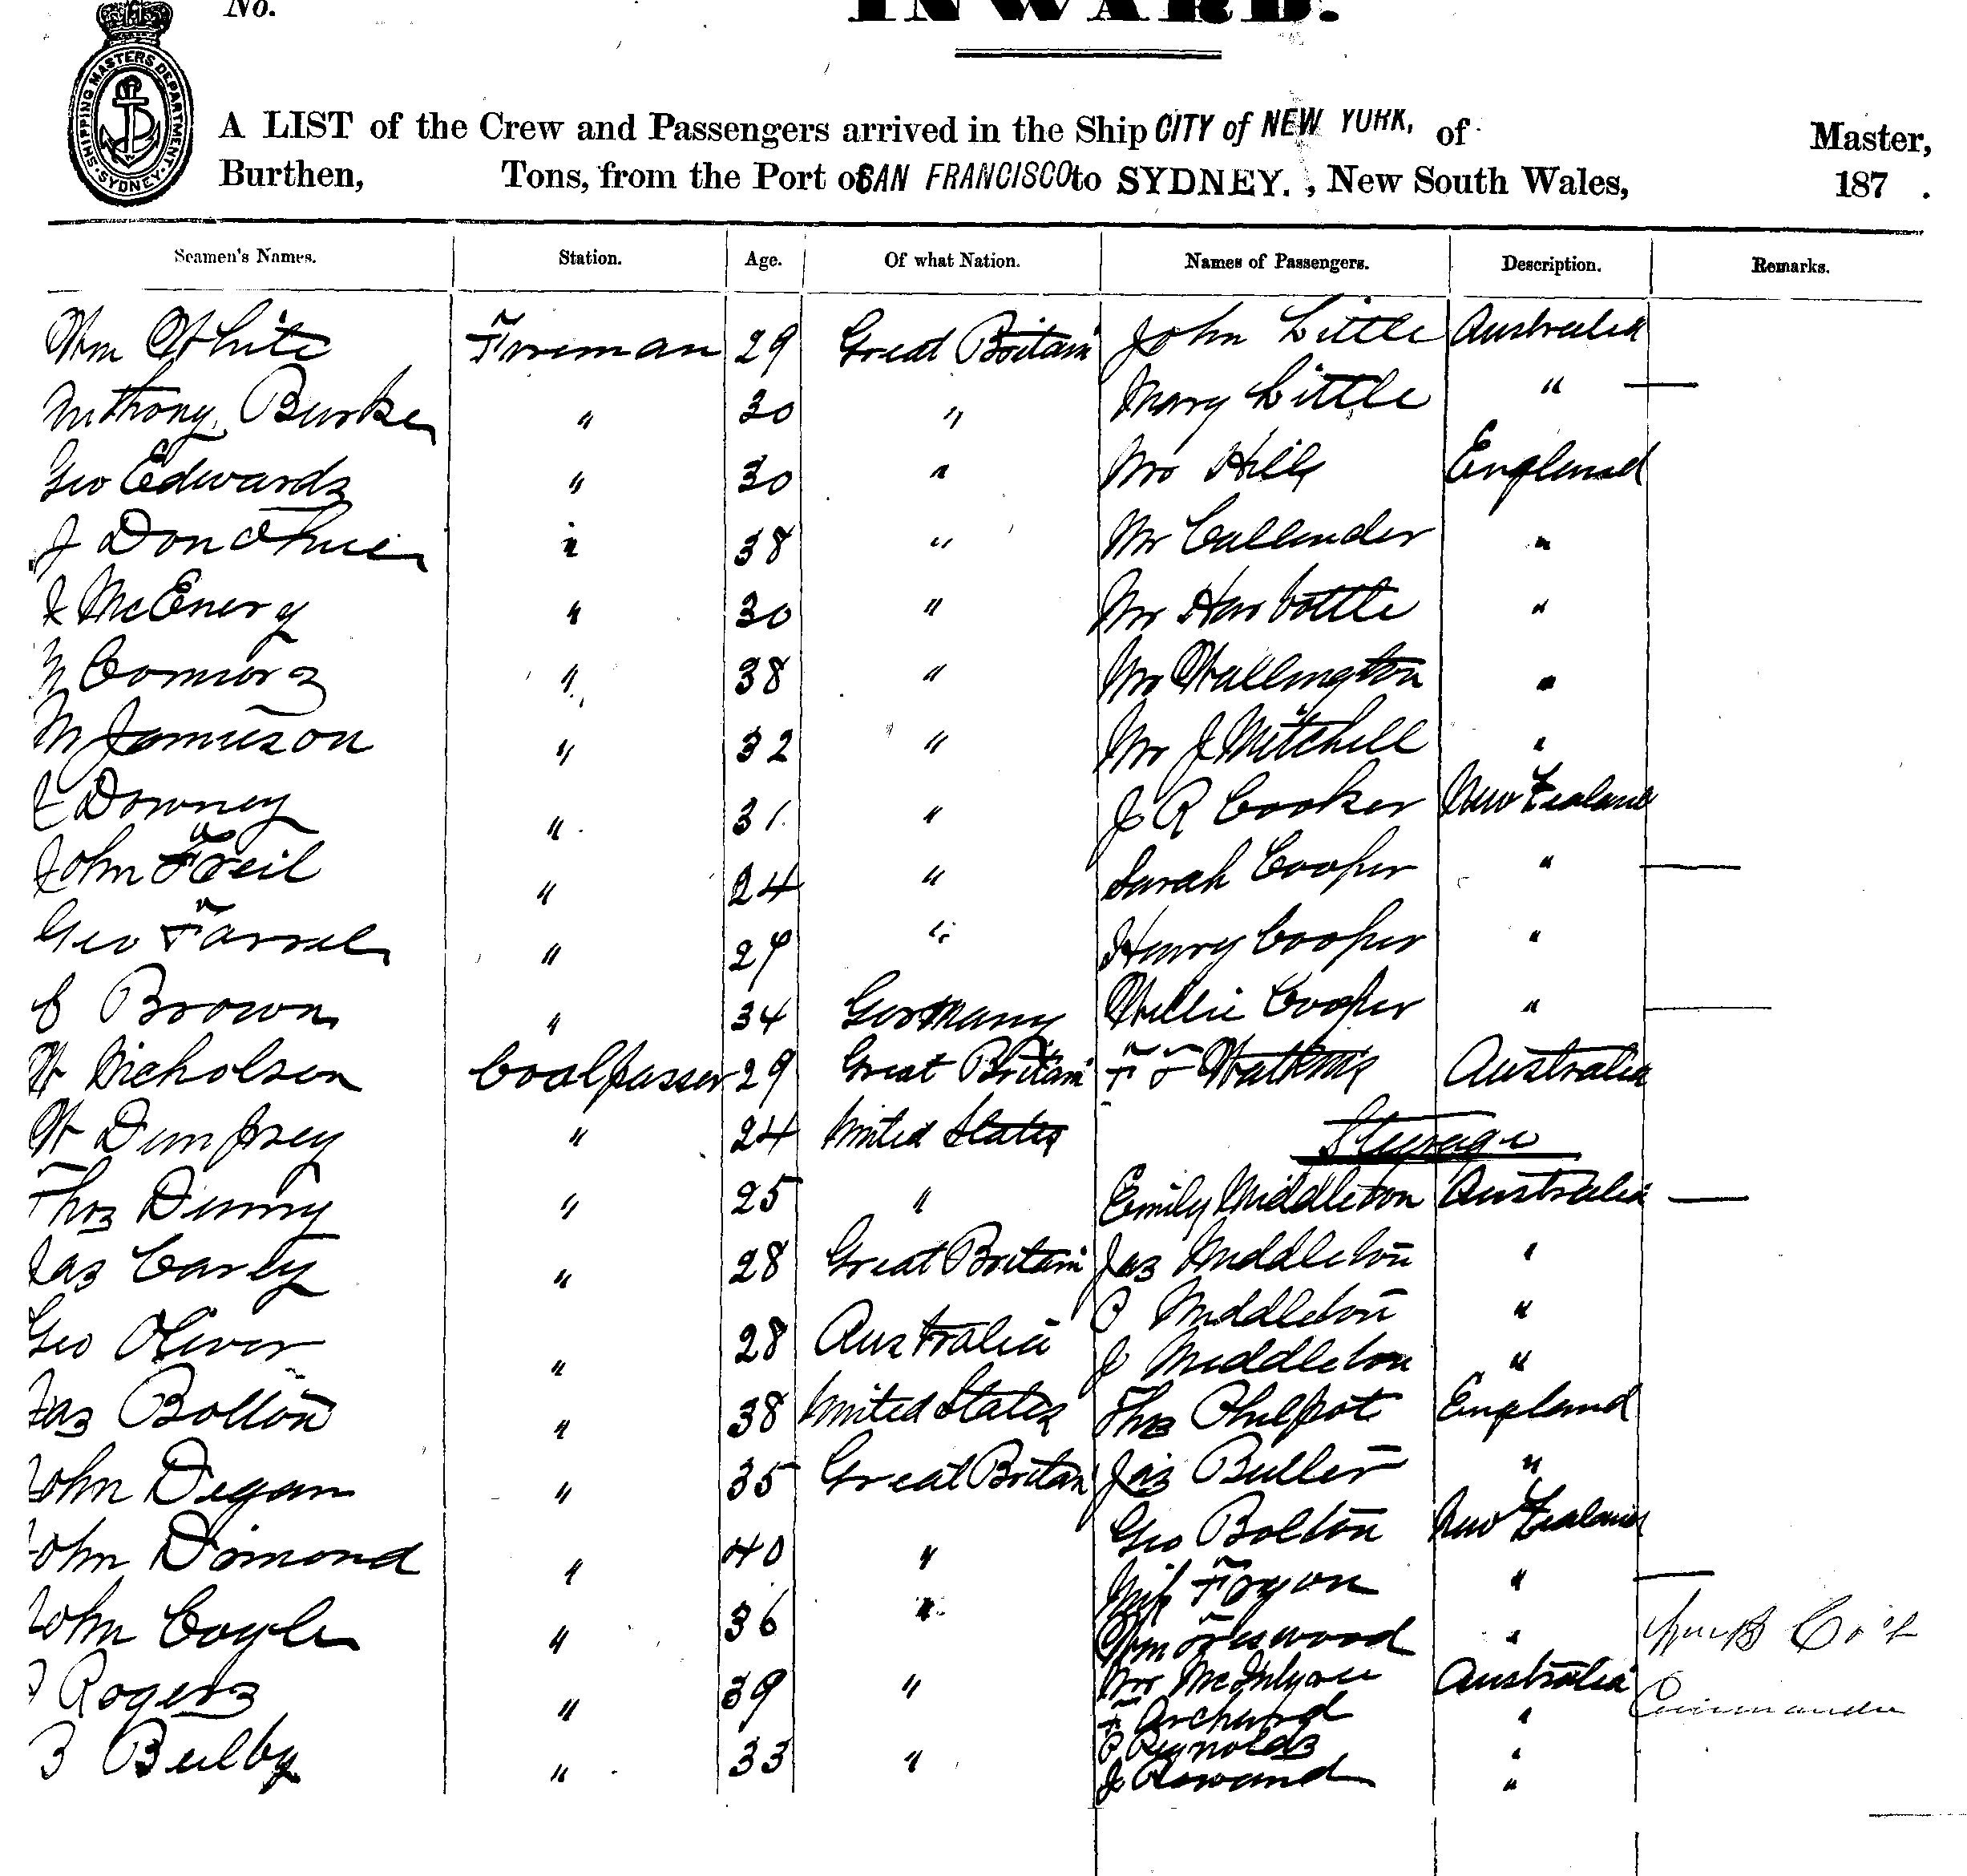 No.
INWARD.
SHIPPING MASTERS DEPARTMENT SYDNEY
A LIST of the Crew and Passengers arrived in the Ship CITY of NEW YORK, of Master,
Burthen, Tons, from the Port of SAN FRANCISCO to SYDNEY. , New South Wales, 187 .
Seamen's Names. Station. Age. Of what Nation. Names of Passengers. Description. Remarks.
Wm White Fireman 29 Great Britain John Little Australia
Anthony Burke " 30 " Mary Little " —
Geo Edwards " 30 " Mr Hill England
J Donohue " 38 " Mr Callender "
J McEnery " 30 " Mr Harbottle "
M Connors " 38 " Mr Wallington "
M Jamieson " 32 " Mr J Mitchell "
Downey " 31 " J R Cooker New Zealand
John " 24 " Sarah Cooper " —
Geo Farrel " 29 " Henry Cooper "
C Brown " 34 Germany Willie Cooper " —
W Nicholson Coalpasser 29 Great Britain F F Watkins Australia
W Dumfrey " 24 United States Steerage
Thos Denny " 25 " Emily Middleton Australia —
Jas Carey " 28 Great Britain Jas Middleton "
Geo Oliver " 28 Australia P Middleton "
J Middleton "
Jas Bolton " 38 United States Thos Philpot England
John Degan " 35 Great Britain Jas Butler "
Geo Bolton New Zealand
John Dimond " 40 " Miss Fryon " —
John Coyle " 36 " Wm "
Rogers " 39 " Mr McIntyre Australia Commander
F Archard "
B Beilby " 33 " P Reynolds "
J Rowand "